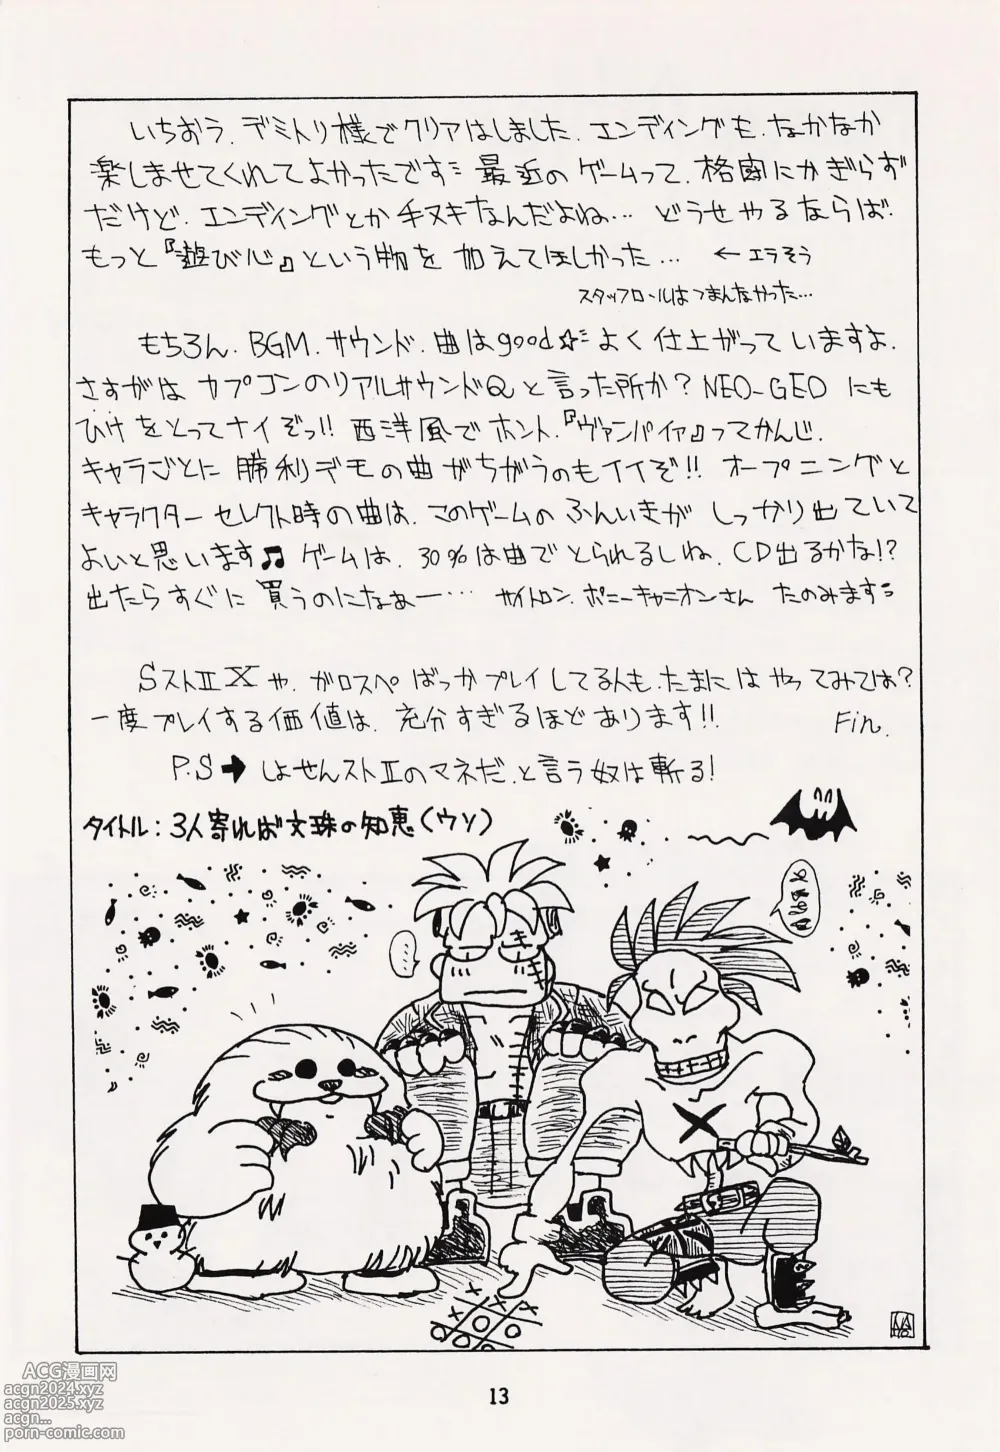 いちおう、デミトリ様でクリアはしました。エンディングも、なかなか
楽しませてくれてよかったです 最近のゲームって、格闘にかぎらず
だけど、エンディングとか手ヌキなんだよね… どうせやるならば、
もっと『遊び心』という物を加えてほしかった… ←エラそう
スタッフロールはつまんなかった…
もちろん、BGM、サウンド、曲はgood☆ よく仕上がっていますよ。
さすがは カプコンのリアルサウンドQと言った所か？NEO-GEO にも
ひけをとってナイぞっ!! 西洋風でホント、『ヴァンパイア』ってかんじ。
キャラごとに 勝利デモの曲がちがうのもイイぞ!! オープニングと
キャラクターセレクト時の曲は、このゲームのふんいきが しっかり出ていて
よいと思います♫ ゲームは、30%は曲でとられるしね、CD出るかな!?
出たらすぐに 買うのになぁー… サイトロン、ポニーキャニオンさん たのみます
SストⅡXや、ガロスペばっかプレイしてる人も、たまにはやってみては？
一度プレイする価値は、充分すぎるほどあります!! Fin.
P.S➡しょせんストⅡのマネだ、と言う奴は斬る!
タイトル：3人寄れば文珠の知恵（ウソ）
…
13
ACG漫画网
acgn2024.xyz
acgn2025.xyz
acgn...
porn-comic.com